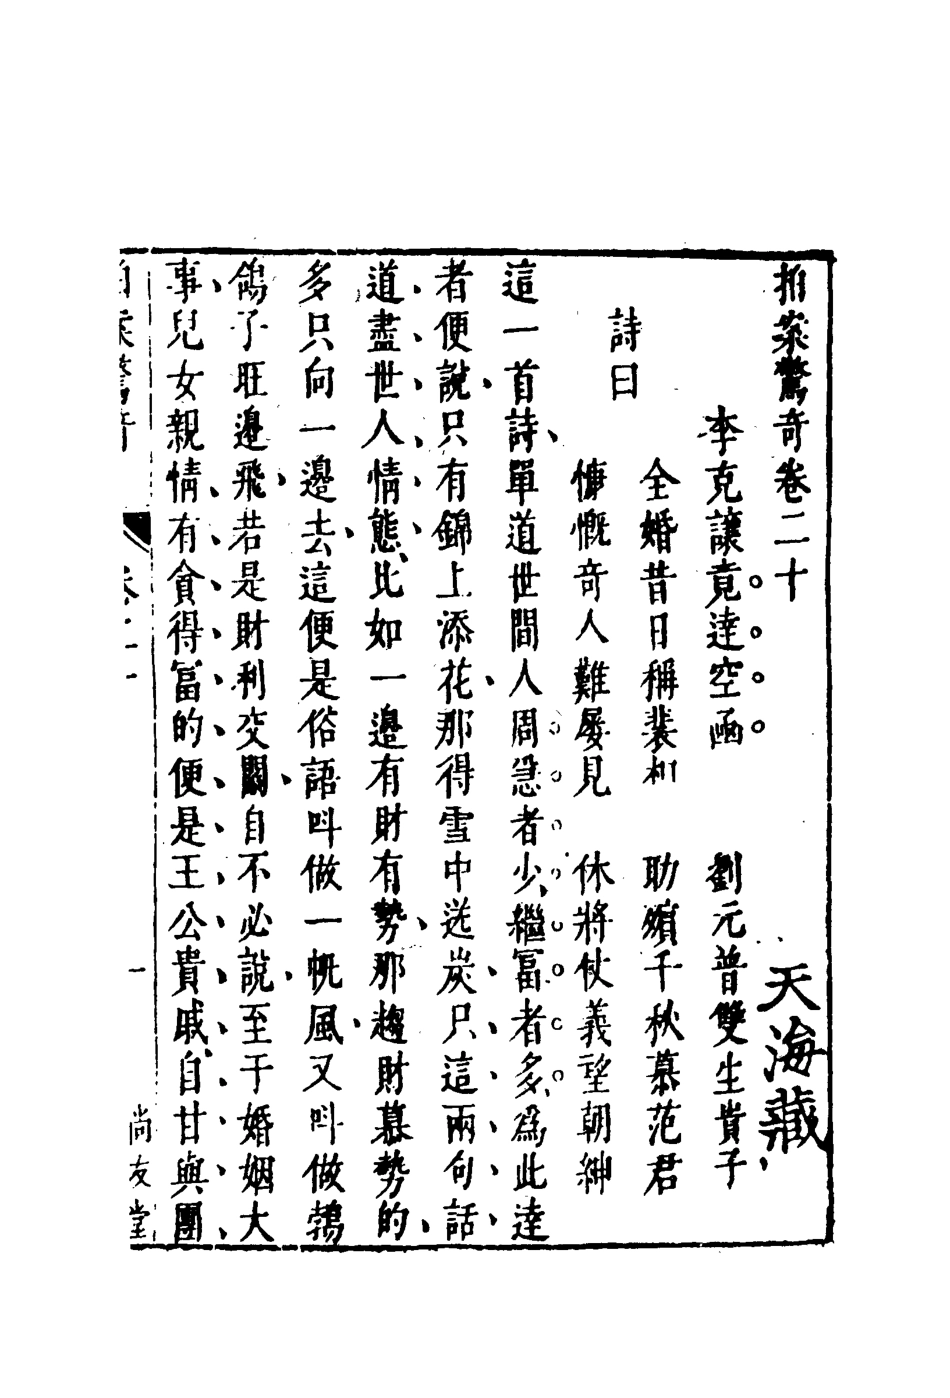 拍案驚奇卷二十
天海藏
李克讓竟達空函 劉元普雙生貴子
詩曰
全婚昔日稱裴相 助殯千秋慕范君
慷慨奇人難屢見 休將仗義望朝紳
這一首詩單道世間人周急者少繼富者多為此達
者便說只有錦上添花那得雪中送炭只這兩句話
道盡世人情態比如一邊有財有勢那趨財慕勢的
多只向一邊去這便是俗語呌做一帆風又呌做鵓
鴿子旺邊飛若是財利交關自不必說至于婚姻大
事兒女親情有貪得富的便是王公貴戚自甘與團
拍案驚奇 卷二十 一 尚友堂